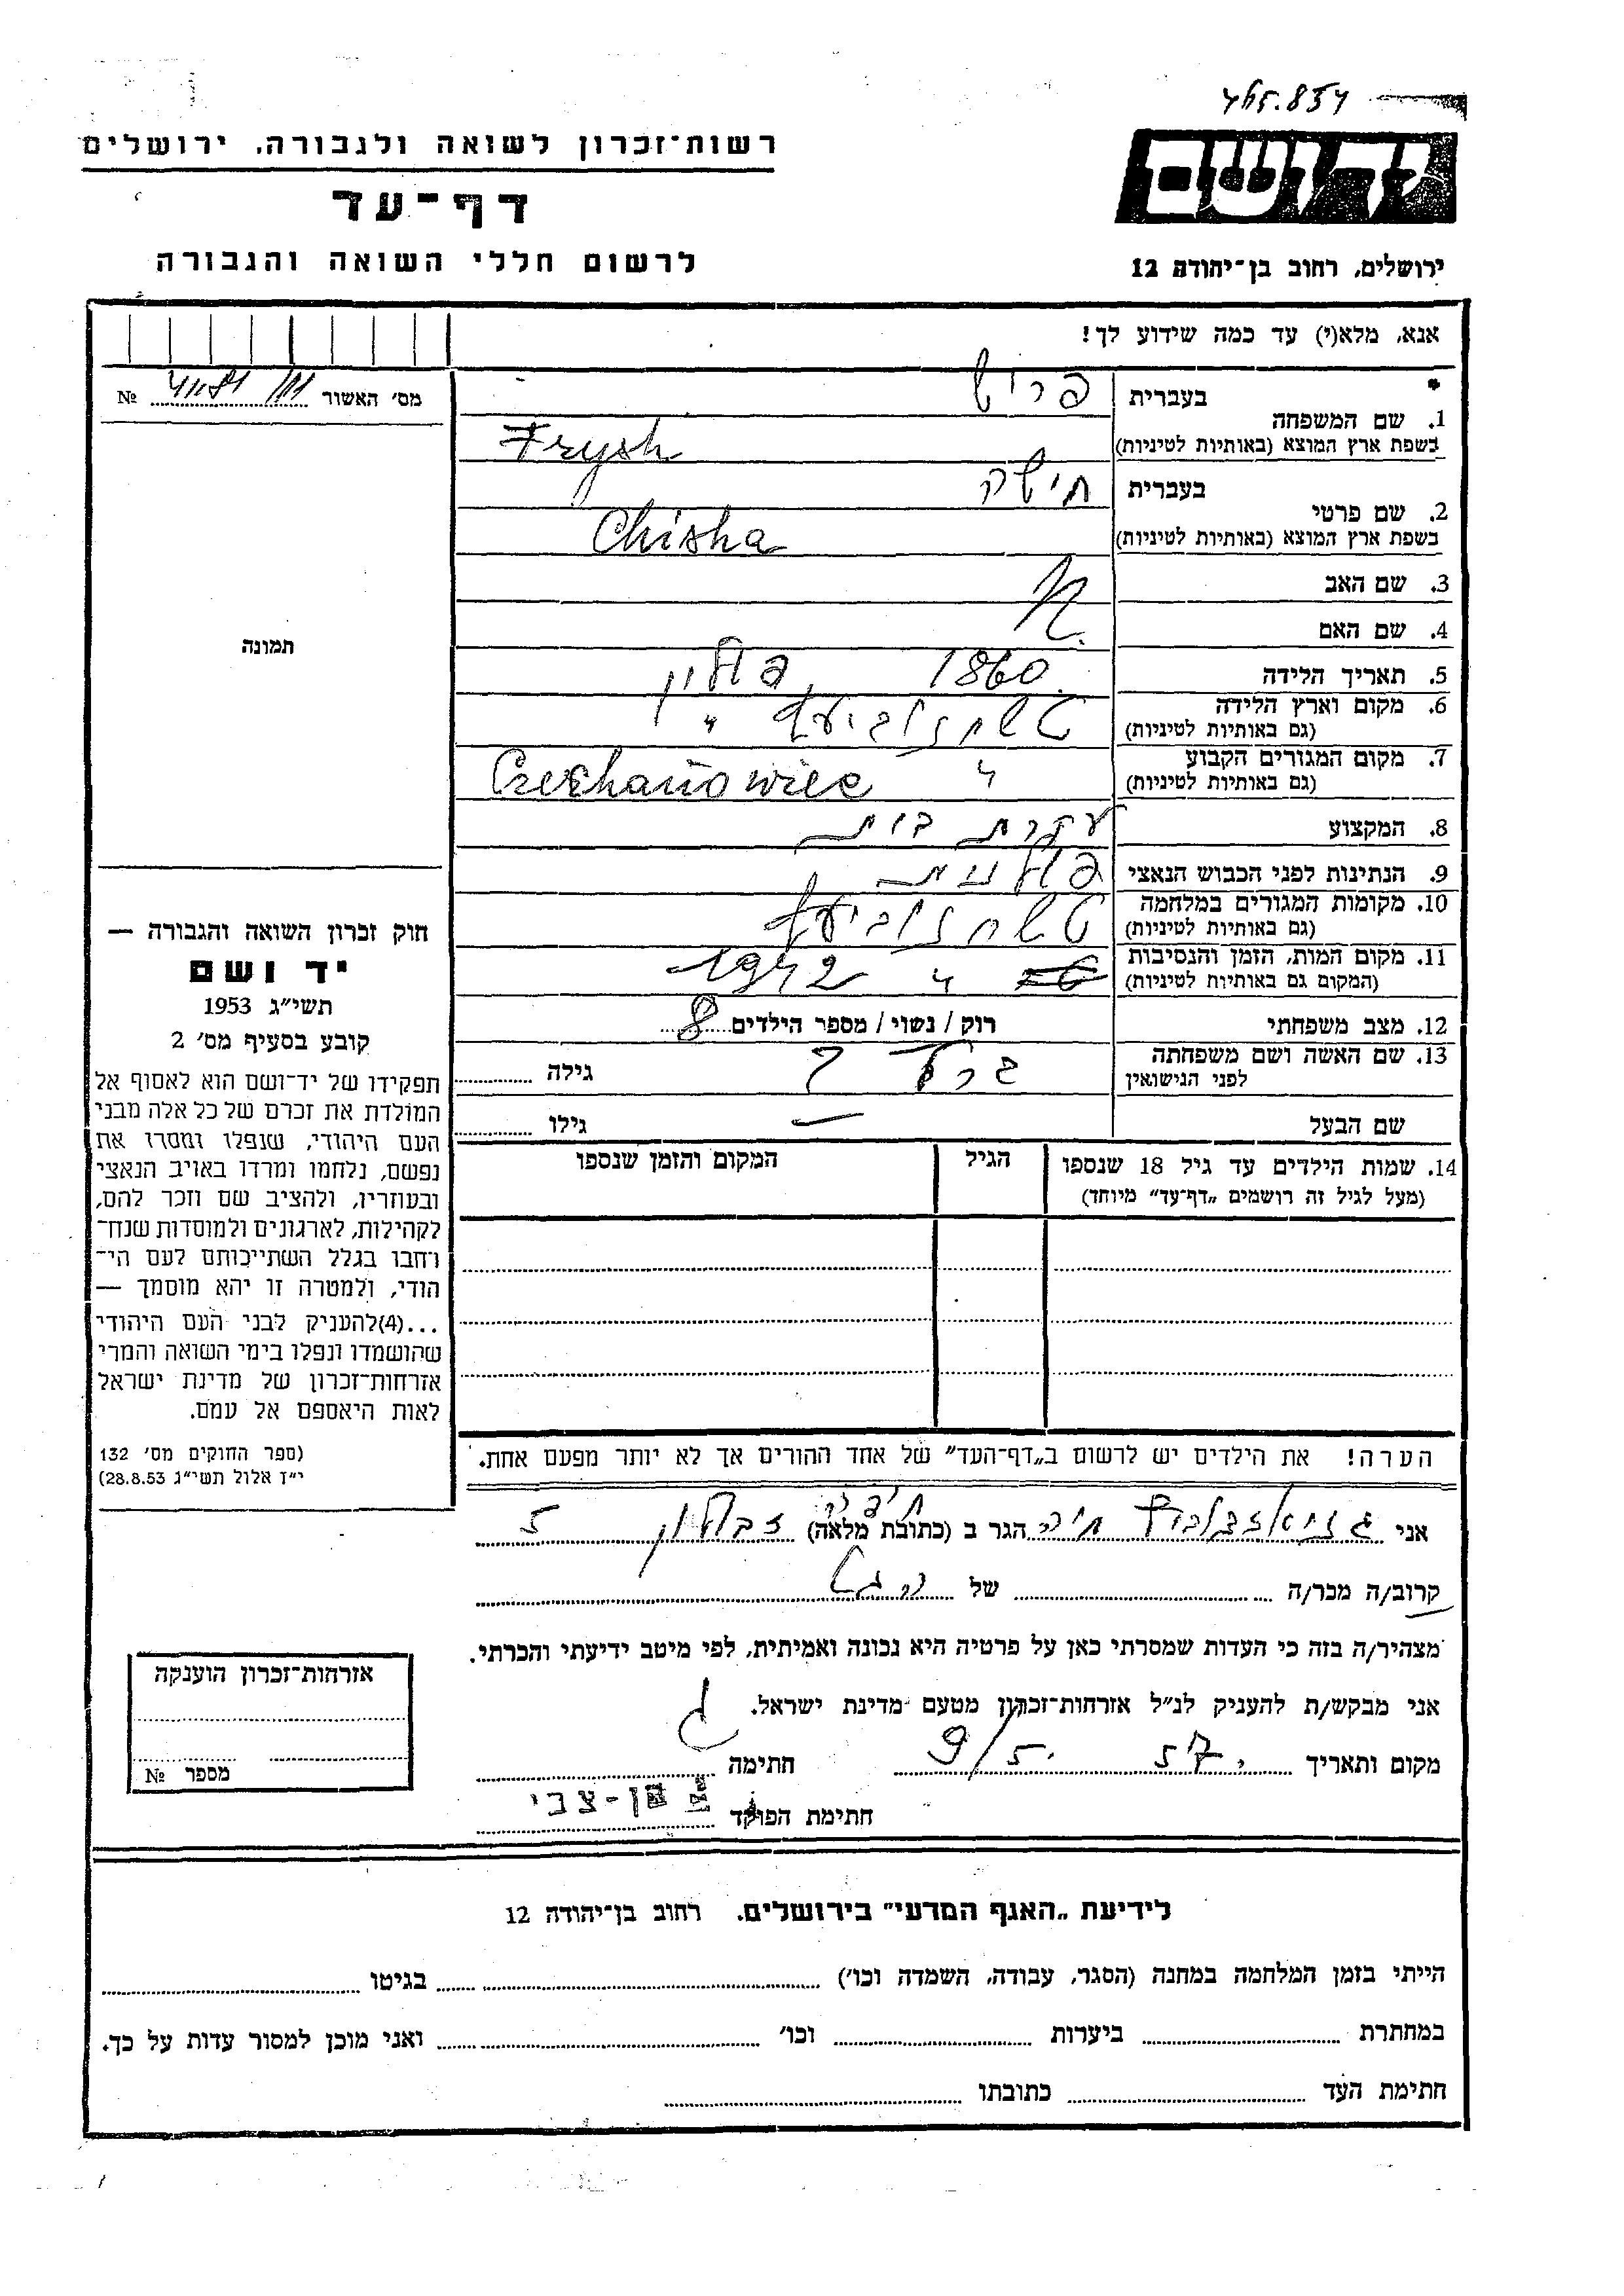 465.834
יד ושם
רשות־זכרון לשואה ולגבורה, ירושלים
דף־עד
לרשום חללי השואה והגבורה
ירושלים, רחוב בן־יהודה 12
אנא, מלא(י) עד כמה שידוע לך!
מס' האשור №
בעברית פריש
1. שם המשפחה
בשפת ארץ המוצא (באותיות לטיניות) Frysh
בעברית חישה
2. שם פרטי
בשפת ארץ המוצא (באותיות לטיניות) Chisha
3. שם האב
4. שם האם
5. תאריך הלידה 1860 פולין
6. מקום וארץ הלידה
(גם באותיות לטיניות)
7. מקום המגורים הקבוע
(גם באותיות לטיניות) " Czechanowiec
8. המקצוע עקרת בית
9. הנתינות לפני הכבוש הנאצי פולנית
10. מקומות המגורים במלחמה
(גם באותיות לטיניות)
11. מקום המות, הזמן והנסיבות
(המקום גם באותיות לטיניות) " 1942
12. מצב משפחתי רוק / נשוי / מספר הילדים 8
13. שם האשה ושם משפחתה
לפני הנישואין גילה
שם הבעל — גילו
14. שמות הילדים עד גיל 18 שנספו
(מעל לגיל זה רושמים „דף־עד" מיוחד)
הגיל
המקום והזמן שנספו
הערה! את הילדים יש לרשום ב„דף־העד" של אחד ההורים אך לא יותר מפעם אחת.
תמונה
חוק זכרון השואה והגבורה —
יד ושם
תשי"ג 1953
קובע בסעיף מס' 2
תפקידו של יד־ושם הוא לאסוף אל
המולדת את זכרם של כל אלה מבני
העם היהודי, שנפלו ומסרו את
נפשם, נלחמו ומרדו באויב הנאצי
ובעוזריו, ולהציב שם וזכר להם,
לקהילות, לארגונים ולמוסדות שנח־
רחבו בגלל השתייכותם לעם הי־
הודי, ולמטרה זו יהא מוסמך —
...(4)להעניק לבני העם היהודי
שהושמדו ונפלו בימי השואה והמרי
אזרחות־זכרון של מדינת ישראל
לאות היאספם אל עמם.
(ספר החוקים מס' 132
י"ז אלול תשי"ג 28.8.53)
חיפה
אני חיה הגר ב (כתובת מלאה) זבולון 5
קרוב/ה מכר/ה של הנ"ל
מצהיר/ה בזה כי העדות שמסרתי כאן על פרטיה היא נכונה ואמיתית, לפי מיטב ידיעתי והכרתי.
אני מבקש/ת להעניק לנ"ל אזרחות־זכרון מטעם מדינת ישראל.
מקום ותאריך 9/5. 57. חתימה
חתימת הפוקד בן-צבי
אזרחות־זכרון הוענקה
מספר №
לידיעת „האגף המדעי" בירושלים. רחוב בן־יהודה 12
הייתי בזמן המלחמה במחנה (הסגר, עבודה, השמדה וכו') בגיטו
במחתרת ביערות וכו' ואני מוכן למסור עדות על כך.
חתימת העד כתובתו